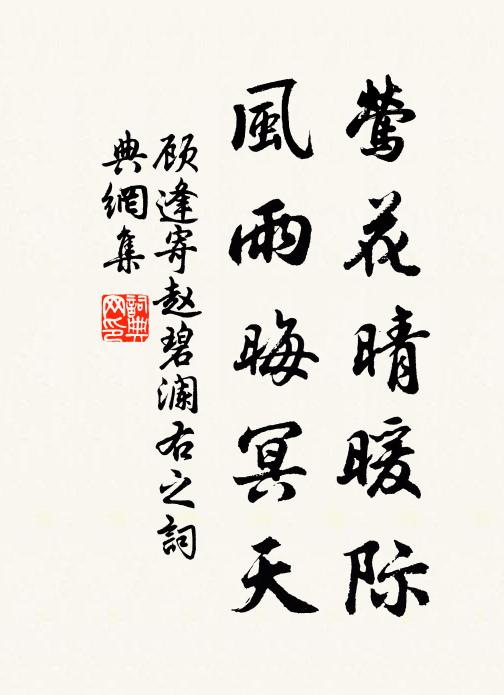 莺花晴暖际
風雨晦冥天
顾逢寄赵碧澜右之詞
典網集
詞典
网印